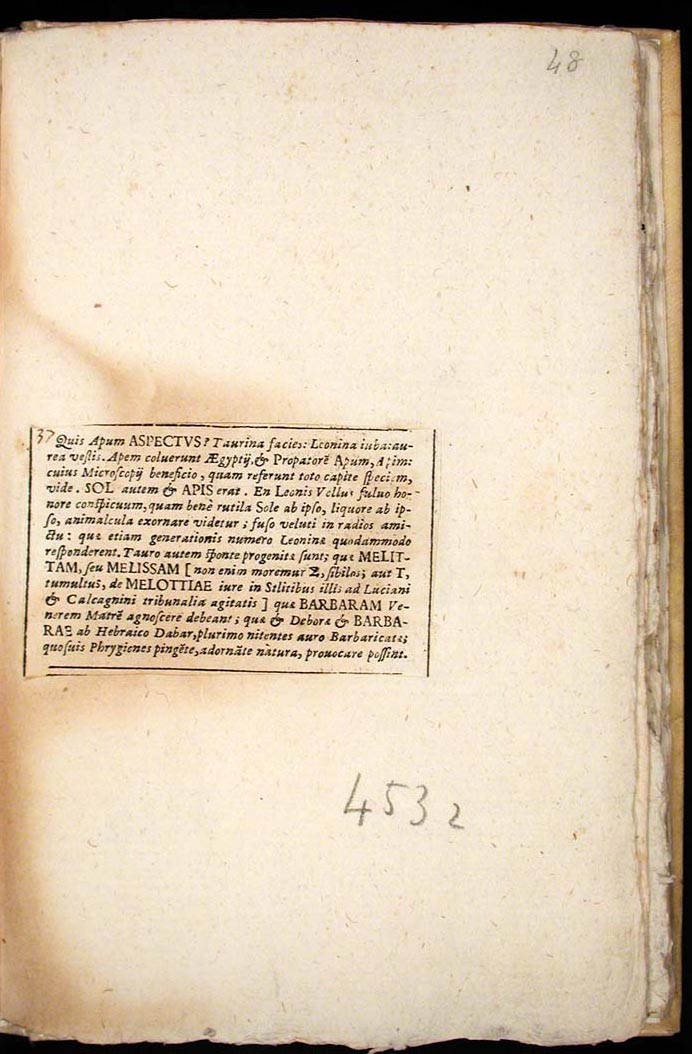 48
37 Quis Apum ASPECTVS? Taurina facies: Leonina iuba: au-
rea vestis. Apem coluerunt Ægyptij, & Propatorẽ Apum, Apim:
cuius Microscopij beneficio, quam referunt toto capite speciem,
vide. SOL autem & APIS erat. En Leonis Vellus fuluo ho-
nore conspicuum, quam benè rutila Sole ab ipso, liquore ab ip-
so, animalcula exornare videtur; fuso veluti in radios ami-
ctu: quæ etiam generationis numero Leoninæ quodammodo
responderent. Tauro autem sponte progenitæ sunt; quæ MELIT-
TAM, seu MELISSAM [non enim moremur Σ, sibilos; aut T,
tumultus, de MELOTTIAE iure in Stlitibus illis ad Luciani
& Calcagnini tribunalia agitatis] quæ BARBARAM Ve-
nerem Matrẽ agnoscere debeant; quæ & Deboræ & BARBA-
RAE ab Hebraico Dabar, plurimo nitentes auro Barbaricatæ;
quosuis Phrygienes pingẽte, adornãte natura, prouocare possint.
4532